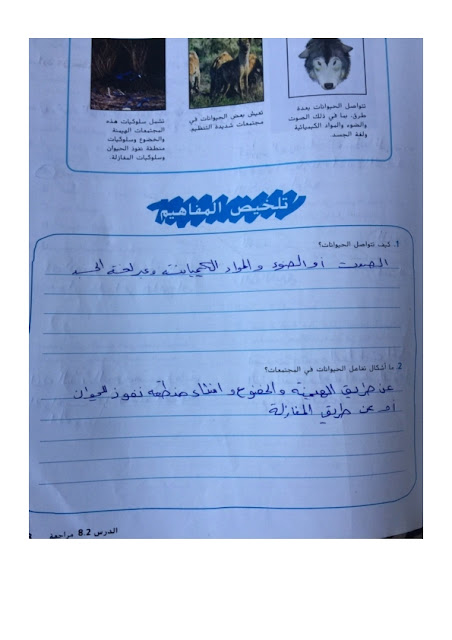 تتواصل الحيوانات بعدة
طرق، بما في ذلك الصوت
والضوء والمواد الكيميائية
ولغة الجسد.
تعيش بعض الحيوانات في
مجتمعات شديدة التنظيم.
تشمل سلوكيات هذه
المجتمعات الهيمنة
والخضوع وسلوكيات
منطقة نفوذ الحيوان
وسلوكيات المغازلة.
تلخيص المفاهيم
1. كيف تتواصل الحيوانات؟
الصوت أو الضوء والمواد الكيميائية وعبر لغة الجسد
2. ما أشكال تفاعل الحيوانات في المجتمعات؟
عن طريق الهيمنة والخضوع و انشاء منطقة نفوذ للحيوان
او عن طريق المغازلة
الدرس 8.2 مراجعة